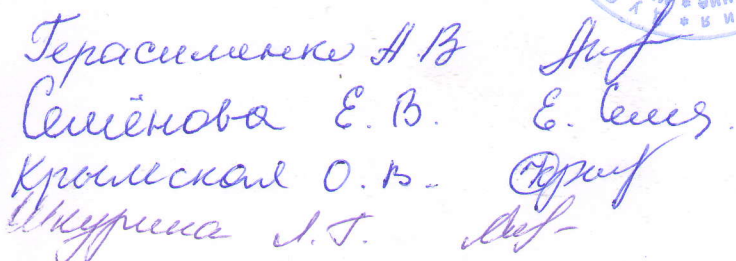 Герасименко А.В
Семёнова Е. В. Е. Сем
Крымская О. В.
Шкурина Л. Г.